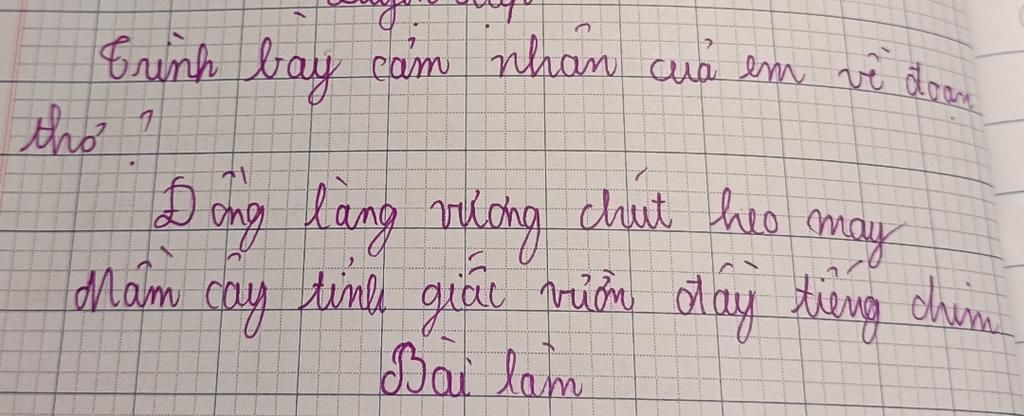 Trình bày cảm nhận của em về đoạn
thơ?
Đồng làng vương chút heo may
Mầm cây tỉnh giấc vườn đầy tiếng chim
Bài làm